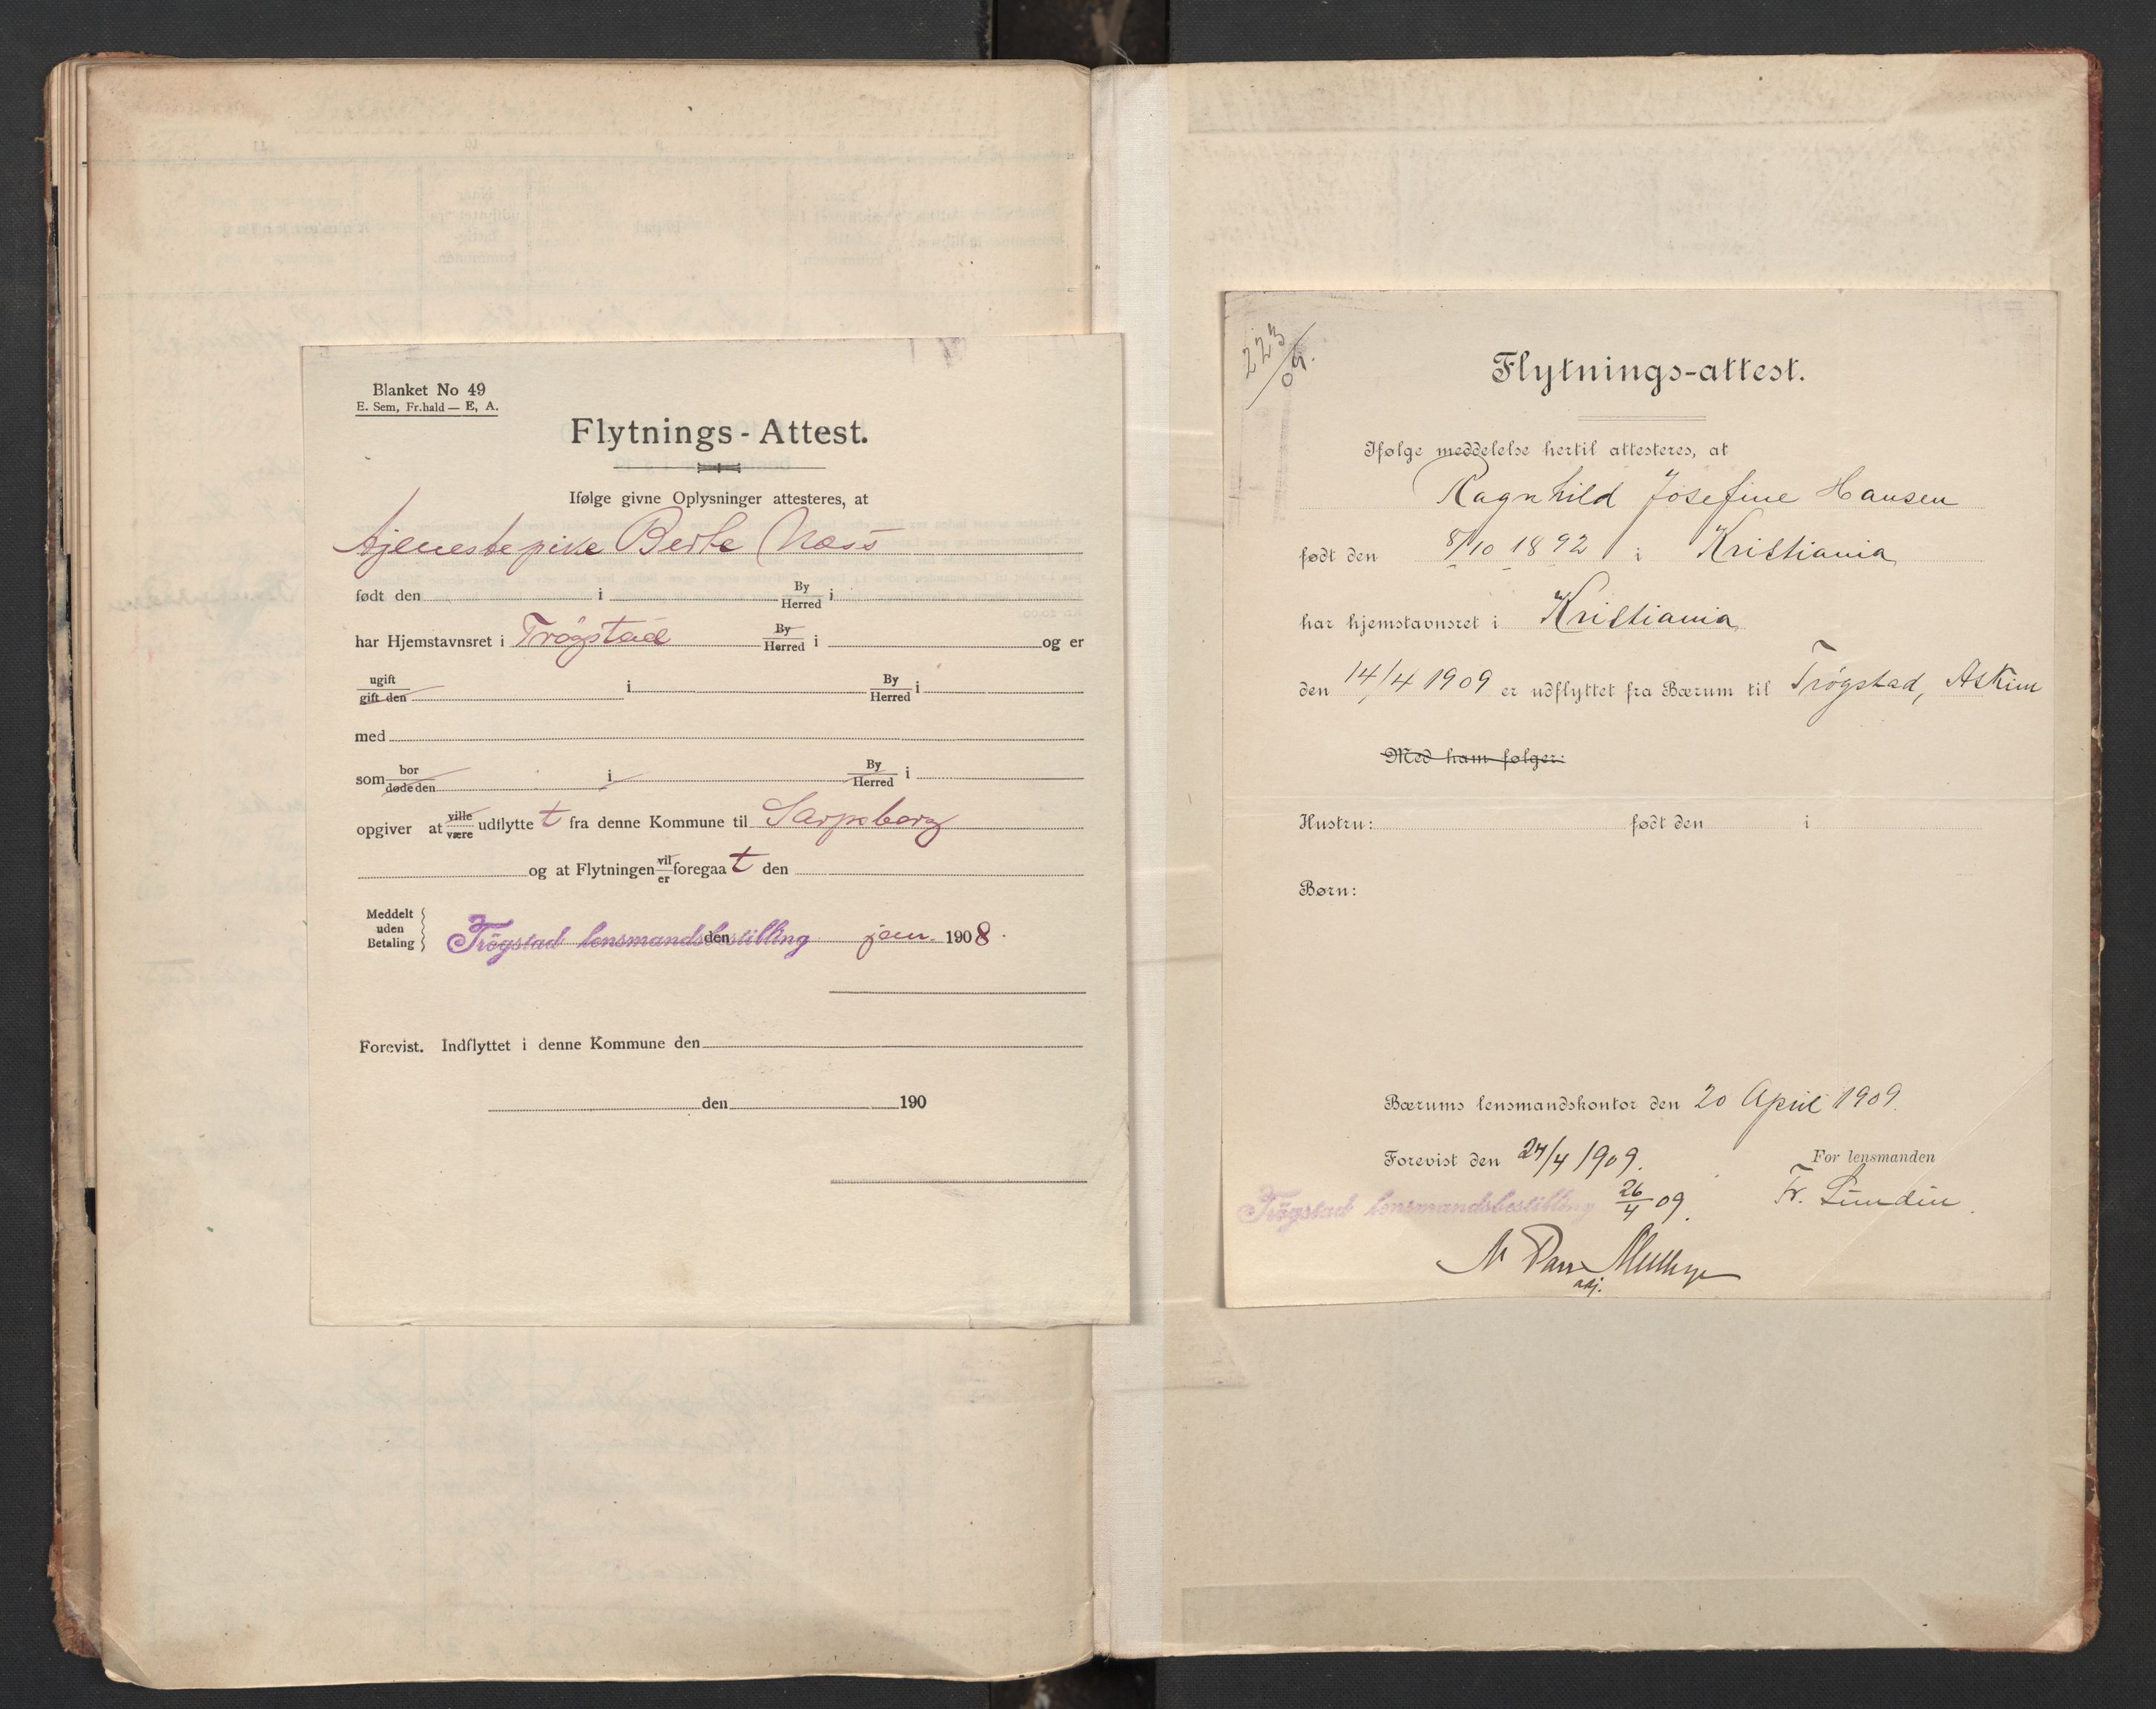 Blanket No 49
E. Sem, Fr.hald — E, A.
Flytnings-Attest.
Ifølge givne Oplysninger attesteres, at
tjenestepike Berte Næss
født den i By Herred i
har Hjemstavnsret i Trögstad By Herred i og er
ugift gift den i By Herred i
med
som bor døde den i By Herred i
opgiver at ville være udflytte t fra denne Kommune til Sarpsborg
og at Flytningen vil er foregaa t den
Meddelt uden Betaling
Trögstad lensmandsbestilling den jan. 1908.
Forevist. Indflyttet i denne Kommune den
den 190
223/09.
Flytnings-attest.
Ifølge meddelelse hertil attesteres, at
Ragnhild Josefine Hansen
født den 8/10 1892 i Kristiania
har hjemstavnsret i Kristiania
den 14/4 1909 er udflyttet fra Bærum til Trögstad, Askim
Med ham følger:
Hustru: født den i
Børn:
Bærums lensmandskontor den 20 April 1909.
Forevist den 24/4 1909. For lensmanden
Trögstad lensmandsbestilling 26/4 09. Fr. Lundin.